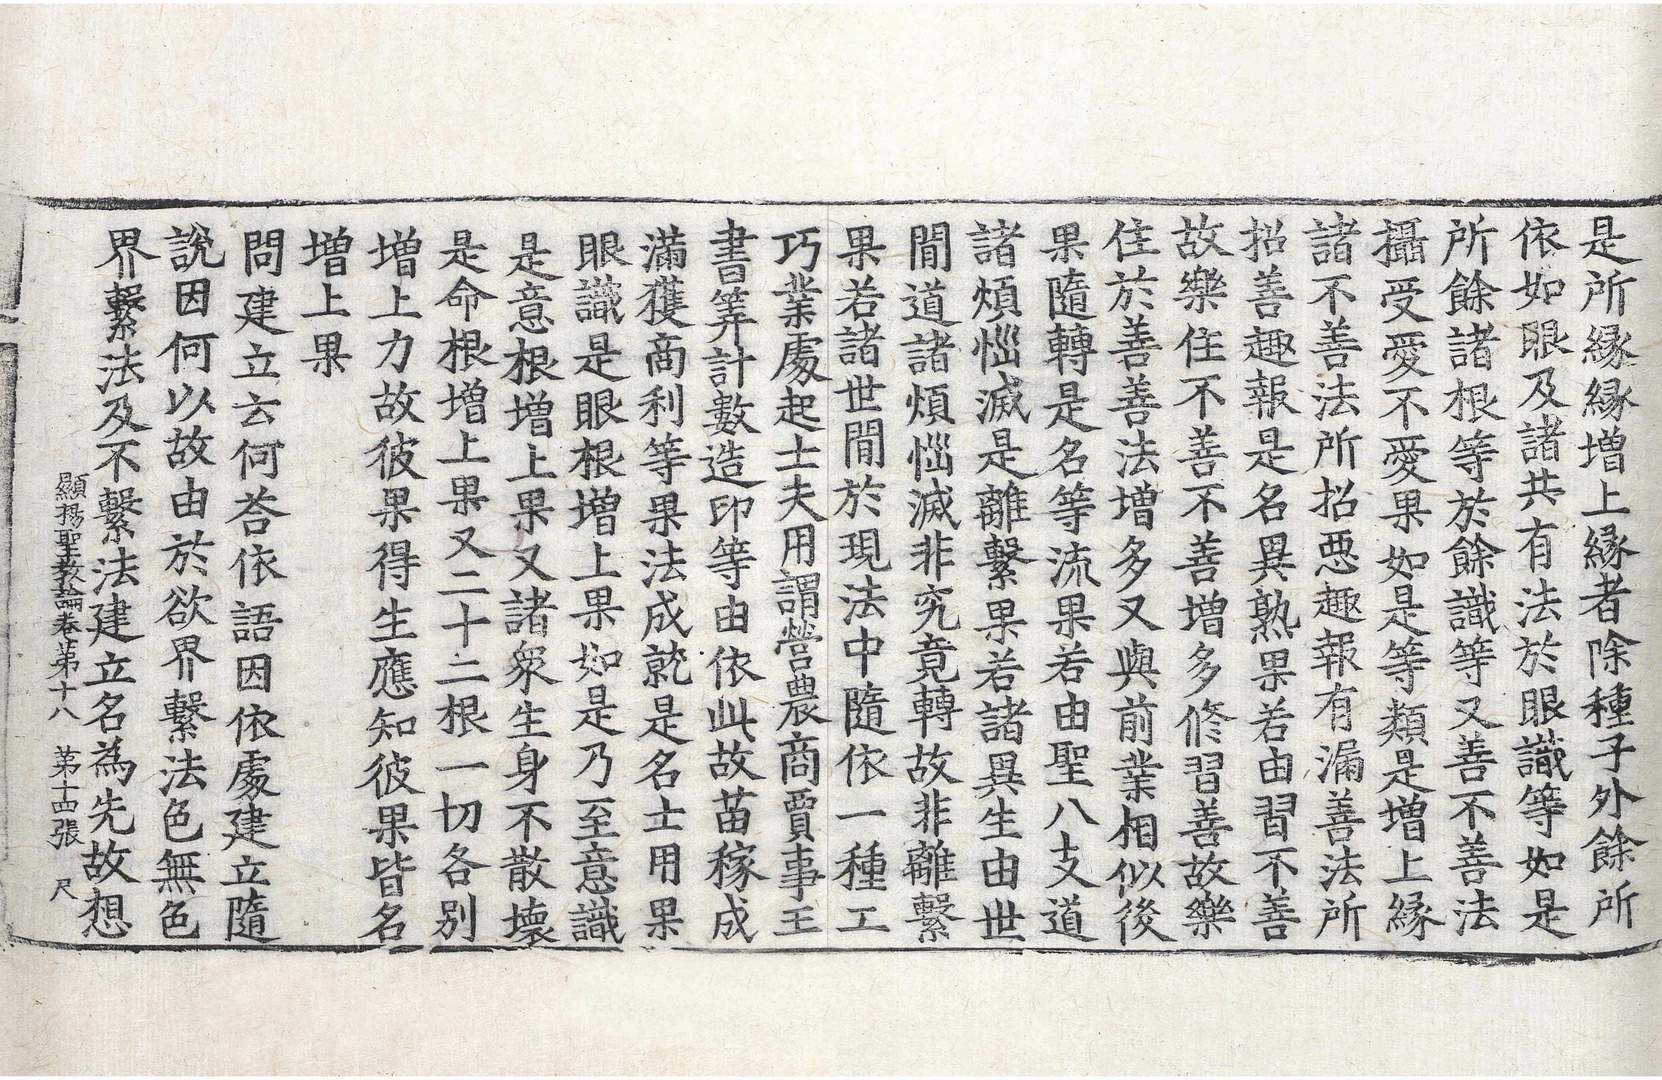 是所緣緣增上緣者除種子外餘所
依如眼及諸共有法於眼識等如是
所餘諸根等於餘識等又善不善法
攝受愛不愛果如是等類是增上緣
諸不善法所招惡趣報有漏善法所
招善趣報是名異熟果若由習不善
故樂住不善不善增多修習善故樂
住於善善法增多又與前業相似後
果隨轉是名等流果若由聖八支道
諸煩惱滅是離繫果若諸異生由世
間道諸煩惱滅非究竟轉故非離繫
果若諸世間於現法中隨依一種工
巧業處起士夫用謂營農商賈事王
書筭計數造印等由依此故苗稼成
滿獲商利等果法成就是名士用果
眼識是眼根增上果如是乃至意識
是意根增上果又諸衆生身不散壞
是命根增上果又二十二根一切各別
增上力故彼果得生應知彼果皆名
增上果
問建立云何荅依語因依處建立隨
說因何以故由於欲界繫法色無色
界繫法及不繫法建立名為先故想
顯揚聖教論卷第十八 第十四張 尺